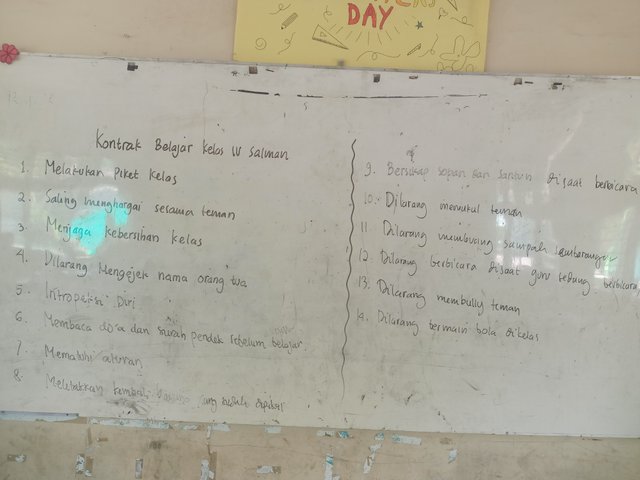 DAY
Kontrak Belajar Kelas IV Salman
1. Melakukan Piket Kelas
2. Saling menghargai sesama teman
3. Menjaga kebersihan kelas
4. Dilarang Mengejek nama orang tua
5. Intropeksi Diri
6. Membaca do'a dan surah pendek sebelum belajar
7. Mematuhi aturan
8. Meletakkan kembali yang sudah dipakai
9. Bersikap sopan dan santun disaat berbicara
10. Dilarang memukul teman
11. Dilarang membuang sampah sembarangan
12. Dilarang berbicara disaat guru sedang berbicara
13. Dilarang membully teman
14. Dilarang bermain bola dikelas